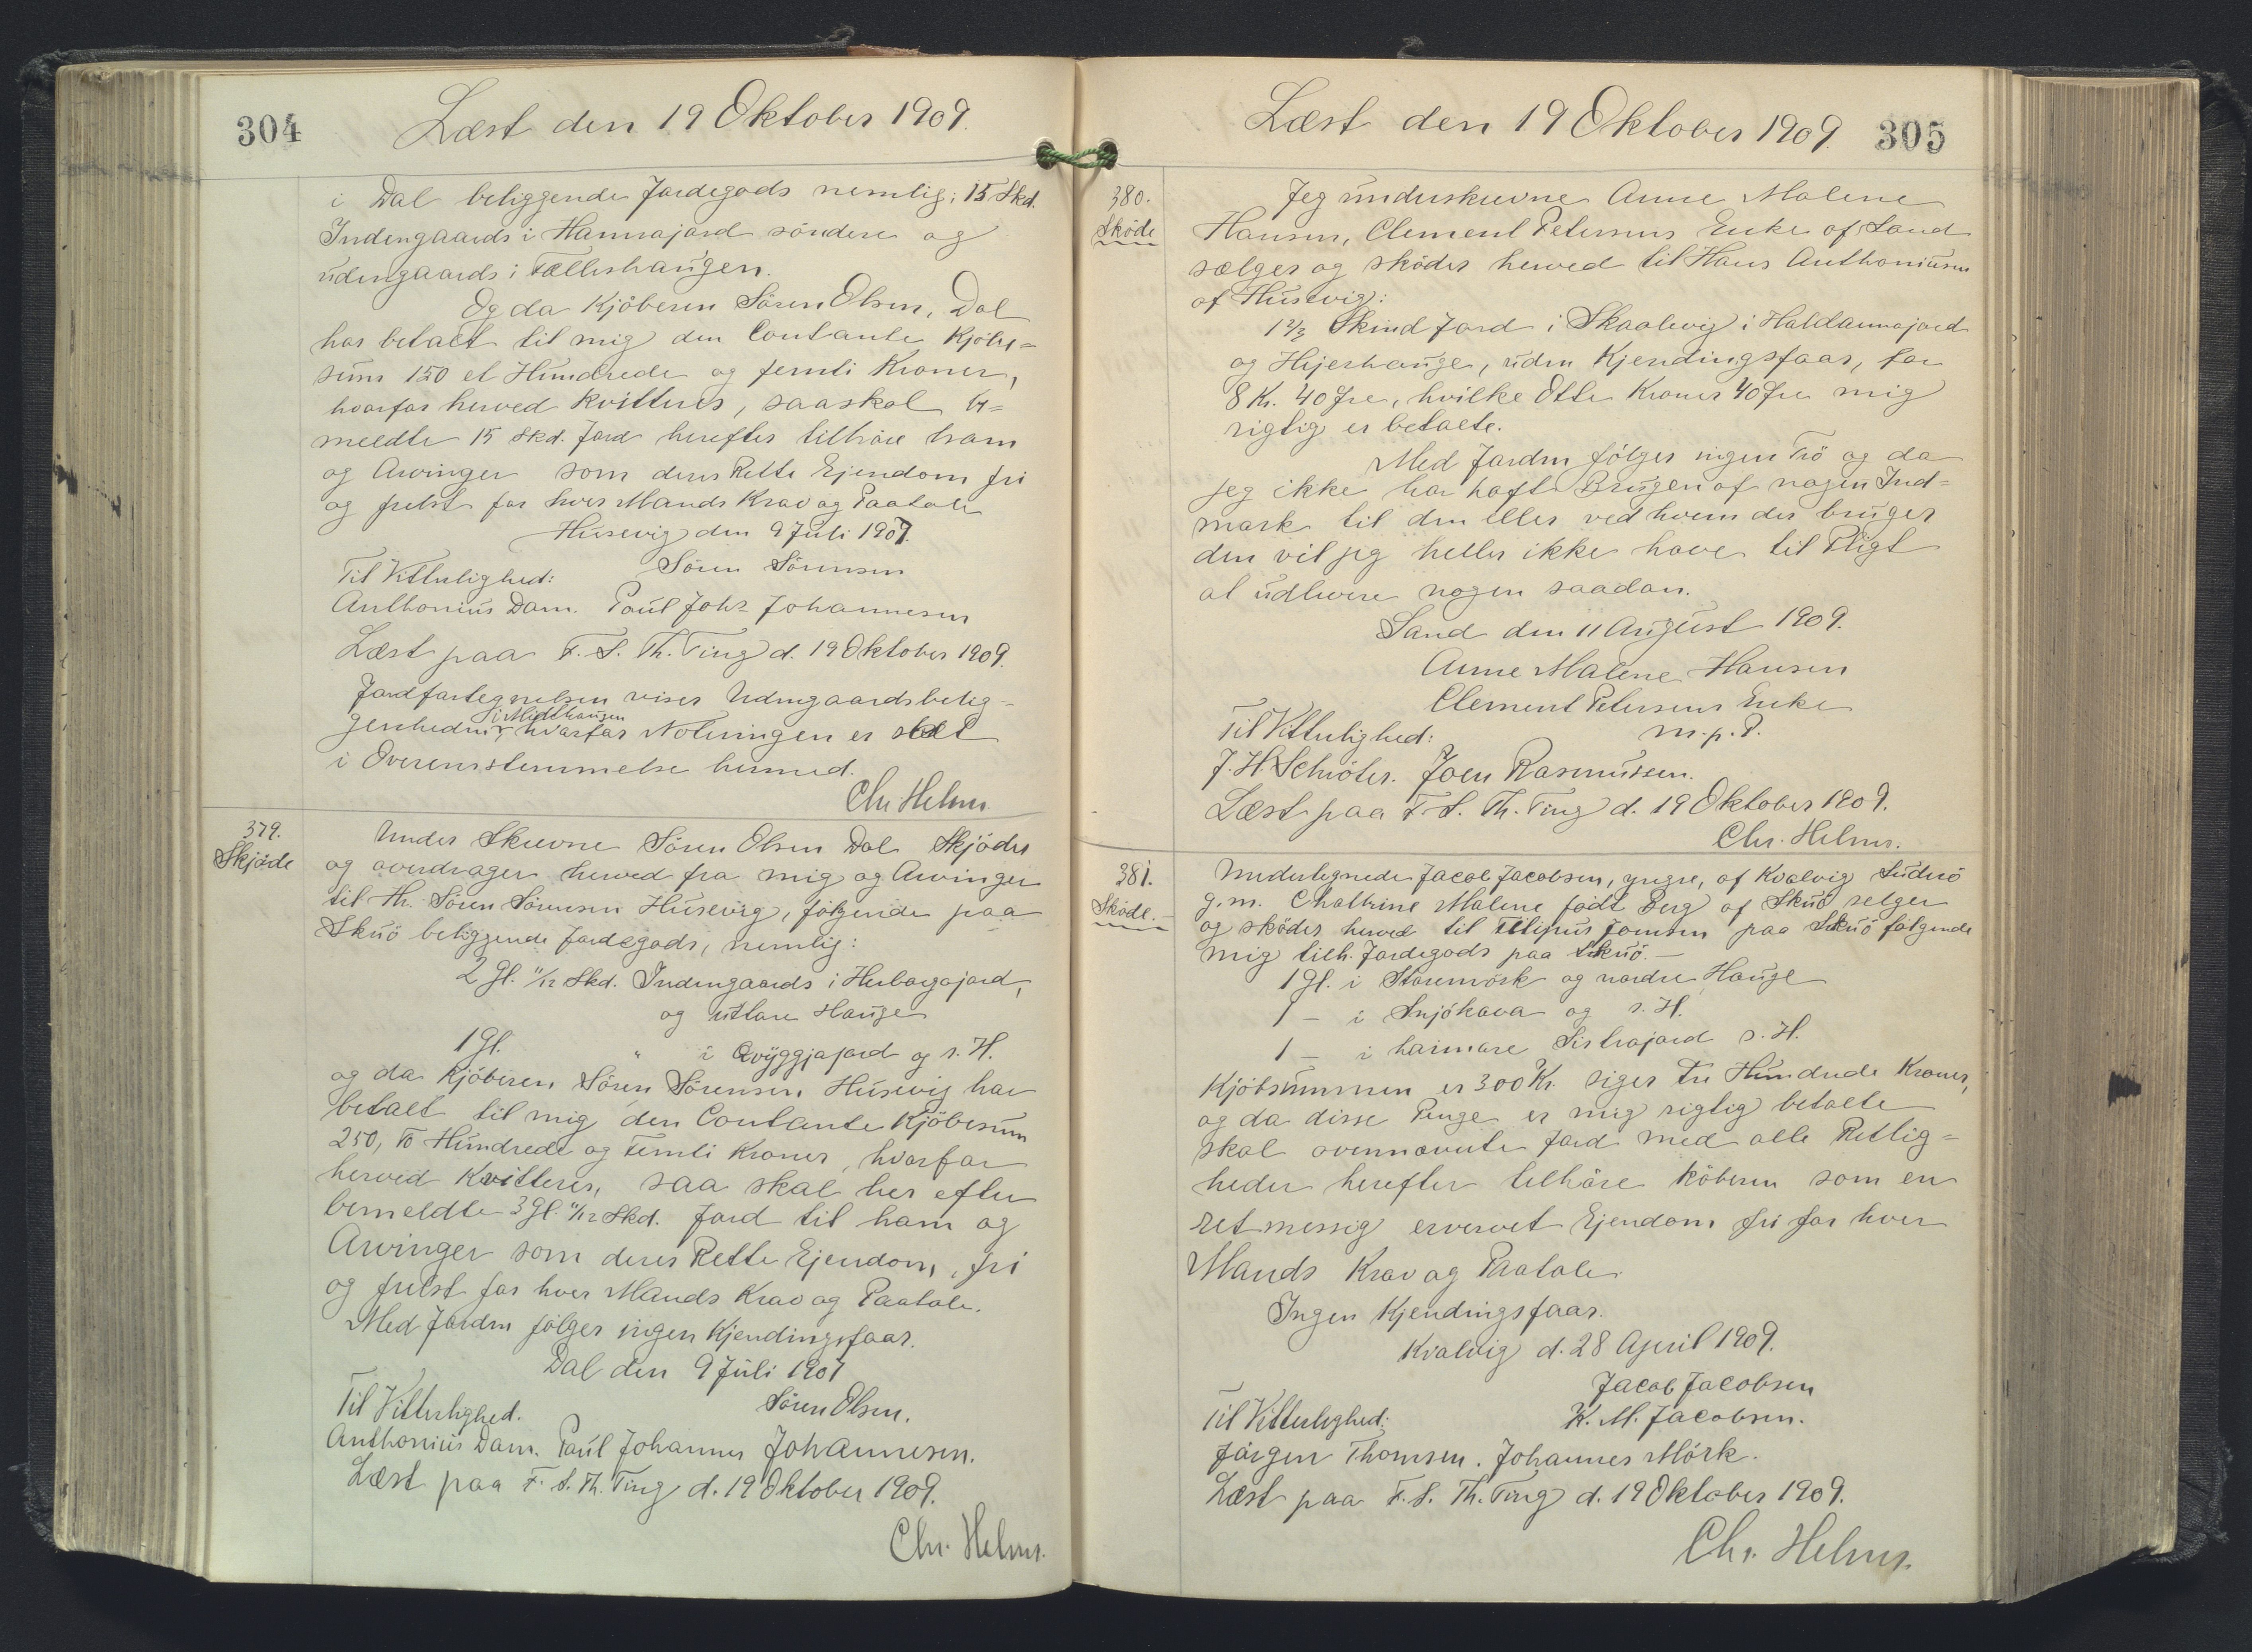 304
Læst den 19 Oktober 1909.
i Dal beliggende Jordegods nemlig: 15 Skd.
Indengaards i Hamrajord søndere og
udengaards i Fælleshaugen.
Og da Kjøberen Søren Olsen, Dal
har betalt til mig den Contante Kjøbe=
sum 150 et Hundrede og femti Kroner,
hvorfor herved kvitteres, saa skal be=
meldte 15 Skd. Jord herefter tilhøre ham
og Arvinger som deres Rette Ejendom fri
og frelst for hver Mands Krav og Paatale
Husevig den 9 Juli 1907.
Til Vitterlighed: Søren Sørensen
Anthonius Dam. Poul Johs Johannesen
Læst paa F. S. Th. Ting d. 19 Oktober 1909.
Jordfortegnelsen viser Udengaardsbelig=
i Midthaugen
genheden, hvorfor Noteringen er sket
i Overensstemmelse hermed.
Chr. Helms.
379.
Skjøde
Under Skrevne Søren Olsen Dal Skjøder
og overdrager herved fra mig og Arvinger
til Hr. Søren Sørensen Husevig, følgende paa
Skuø beliggende Jordegods, nemlig:
2 Gl. 11/12 Skd. Indengaards i Herbergajord,
og utlare Hauge
1 Gl. " i Qvÿggjajord og s. H.
og da Kjøberen Søren Sørensen Husevig har
betalt til mig den Contante Kjøbesum
250, To Hundrede og Femti Kroner, hvorfor
herved Kvitteres, saa skal her efter
bemeldte 3 Gl. 11/12 Skd. Jord til ham og
Arvinger som deres Rette Ejendom, fri
og frelst for hver Mands Krav og Paatale.
Med Jorden følger ingen Kjendingsfaar.
Dal den 9 Juli 1907
Til Vitterlighed. Søren Olsen.
Anthonius Dam. Poul Johannes Johannesen.
Læst paa F. S. Th. Ting d. 19 Oktober 1909.
Chr. Helms.
Læst den 19 Oktober 1909.
305
380.
Skøde
Jeg underskrevne Anne Malene
Hansen, Clement Petersens Enke af Sand
sælger og skøder herved til Hans Anthoniusen
af Husevig:
1 2/3 Skind Jord i Skaalevig i Haldannajord
og Hejeshauge, uden Kjendingsfaar, for
8 Kr. 40 Øre, hvilke Otte Kroner 40 Øre mig
rigtig er betalte.
Med Jorden følger ingen Trø og da
jeg ikke har haft Brugen af nogen Ind=
mark til den eller ved hvem der bruger
den vil jeg heller ikke have til Pligt
at udlevere nogen saadan.
Sand den 11 August 1909.
Anne Malene Hansen
Clement Petersens Enke
Til Vitterlighed: m. p. P.
J. H. Schrøter. Joen Rasmussen.
Læst paa F. S. Th. Ting d. 19 Oktober 1909.
Chr. Helms.
381.
Skøde.
Undertegnede Jacob Jacobsen, yngre, af Kvalvig Suderø
g. m. Chathrine Malene født Berg af Skuø selger
og skøder herved til Filipus Joensen paa Skuø følgende
mig tilh. Jordegods paa Skuø.
1 Gl. i Storemørk og nordre Hauge
1 — i Snjókava og s. H.
1 — i haimare Sistrajord s. H.
Kjøbsummen er 300 Kr. siger tre Hundrede Kroner,
og da disse Penge er mig rigtig betalte
skal ovennævnte Jord med alle Rettig=
heder herefter tilhøre Køberen som en
retmessig ervervet Ejendom fri for hver
Mands Krav og Paatale.
Ingen Kjendingsfaar.
Kvalvig d. 28 April 1909.
Jacob Jacobsen
Til Vitterlighed: K. M. Jacobsen.
Jørgen Thomsen. Johannes Mørk.
Læst paa F. S. Th. Ting d. 19 Oktober 1909.
Chr. Helms.